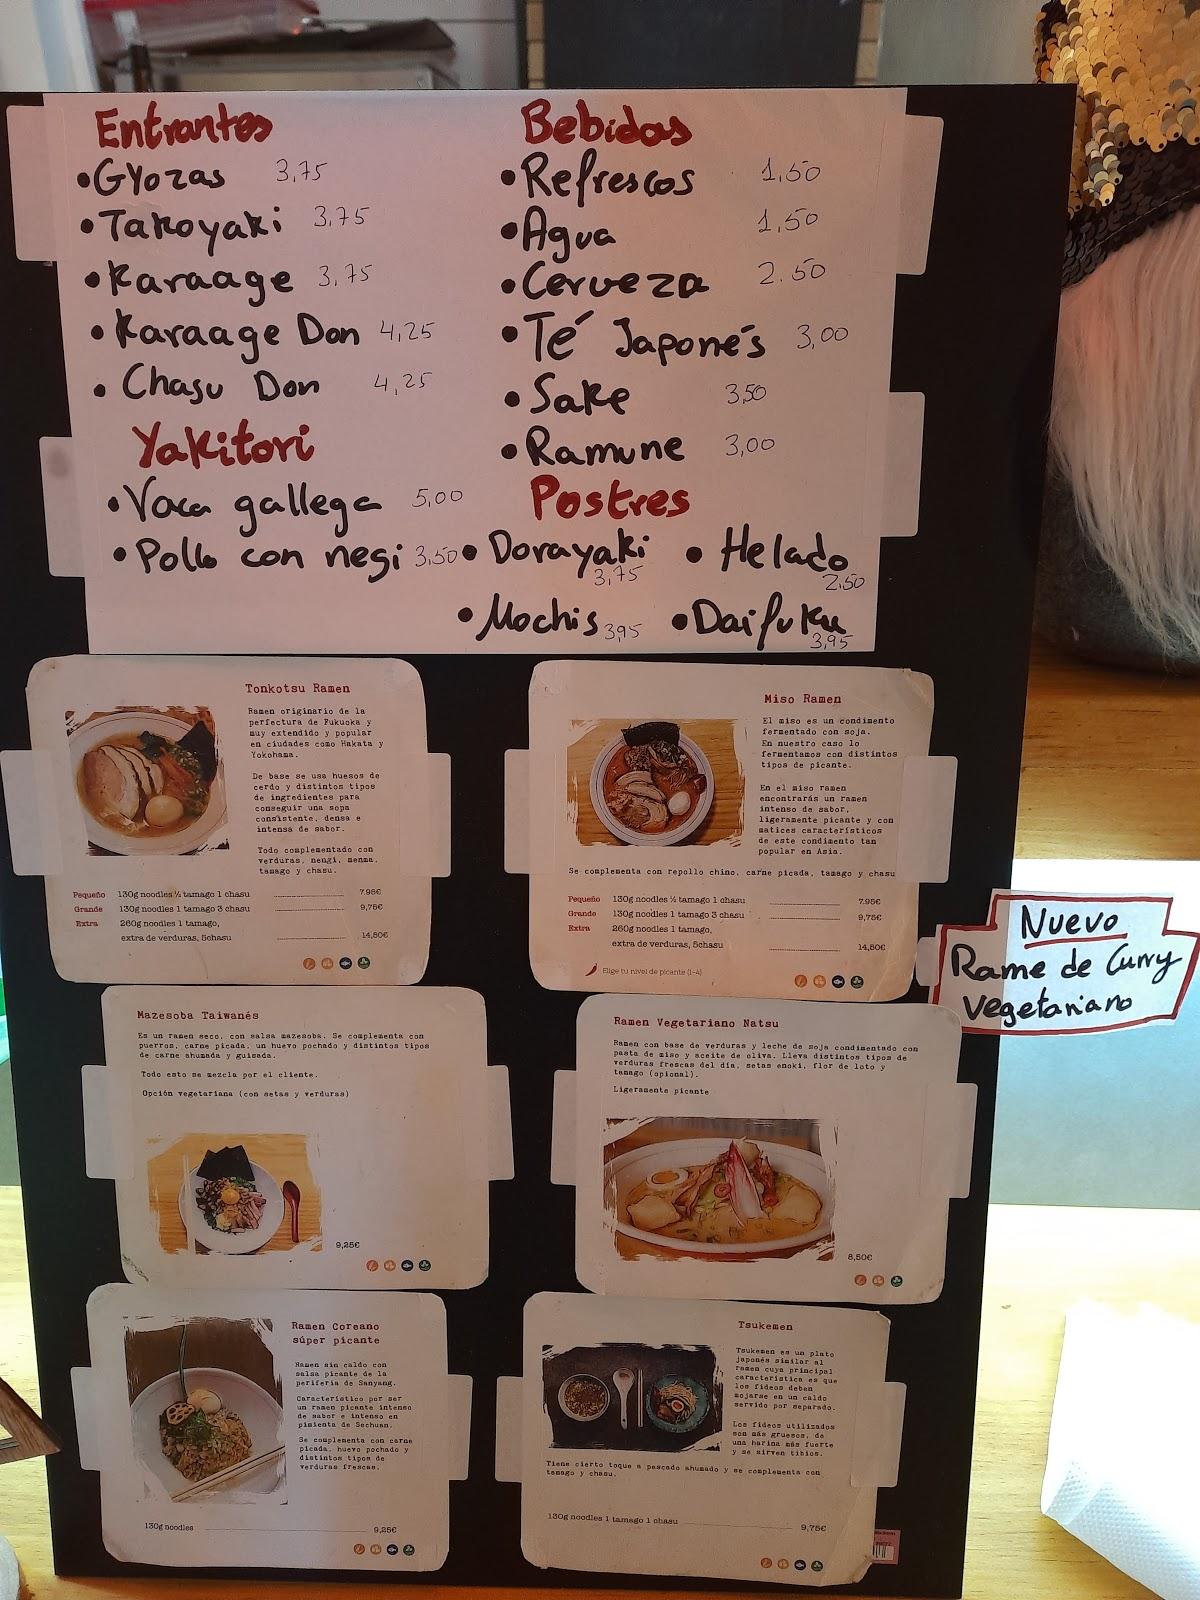 Entrantes
• Gyozas 3,75
• Takoyaki 3,75
• Karaage 3,75
• Karaage Don 4,25
• Chasu Don 4,25
Yakitori
• Vaca gallega 5,00
• Pollo con negi 3,50
Bebidas
• Refrescos 1,50
• Agua 1,50
• Cerveza 2.50
• Té Japonés 3,00
• Sake 3,50
• Ramune 3,00
Postres
• Dorayaki 3,75
• Helado 2,50
• Mochis 3,95
• Daifuku 3,95
Tonkotsu Ramen
Ramen originario de la
perfectura de Fukuoka y
muy extendido y popular
en ciudades como Hakata y
Yokohama.
De base se usa huesos de
cerdo y distintos tipos
de ingredientes para
conseguir una sopa
consistente, densa e
intensa de sabor.
Todo complementado con
verduras, nengi, menma,
tamago y chasu.
Pequeño 130g noodles ½ tamago 1 chasu 7.95€
Grande 130g noodles 1 tamago 3 chasu 9,75€
Extra 260g noodles 1 tamago,
extra de verduras, 5chasu 14,50€
Miso Ramen
El miso es un condimento
fermentado con soja.
En nuestro caso lo
fermentamos con distintos
tipos de picante.
En el miso ramen
encontrarás un ramen
intenso de sabor,
ligeramente picante y con
matices característicos
de este condimento tan
popular en Asia.
Se complementa con repollo chino, carne picada, tamago y chasu
Pequeño 130g noodles ½ tamago 1 chasu 7.95€
Grande 130g noodles 1 tamago 3 chasu 9,75€
Extra 260g noodles 1 tamago,
extra de verduras, 5chasu 14,50€
Elige tu nivel de picante (1-4)
Nuevo
Rame de Curry
Vegetariano
Mazesoba Taiwanés
Es un ramen seco, con salsa mazesoba. Se complementa con
puerros, carne picada, un huevo pochado y distintos tipos
de carne ahumada y guisada.
Todo esto se mezcla por el cliente.
Opción vegetariana (con setas y verduras)
9,25€
Ramen Vegetariano Natsu
Ramen con base de verduras y leche de soja condimentado con
pasta de miso y aceite de oliva. Lleva distintos tipos de
verduras frescas del día, setas enoki, flor de loto y
tamago (opional).
Ligeramente picante
8,50€
Ramen Coreano
súper picante
Ramen sin caldo con
salsa picante de la
periferia de Sanyang.
Característico por ser
un ramen picante intenso
de sabor e intenso en
pimienta de Sechuan.
Se complementa con carne
picada, huevo pochado y
distintos tipos de
verduras frescas.
130g noodles 9,25€
Tsukemen
Tsukemen es un plato
japonés similar al
ramen cuya principal
característica es que
los fideos deben
mojarse en un caldo
servido por separado.
Los fideos utilizados
son más gruesos, de
una harina más fuerte
y se sirven tibios.
Tiene cierto toque a pescado ahumado y se complementa con
tamago y chasu.
130g noodles 1 tamago 1 chasu 9,75€